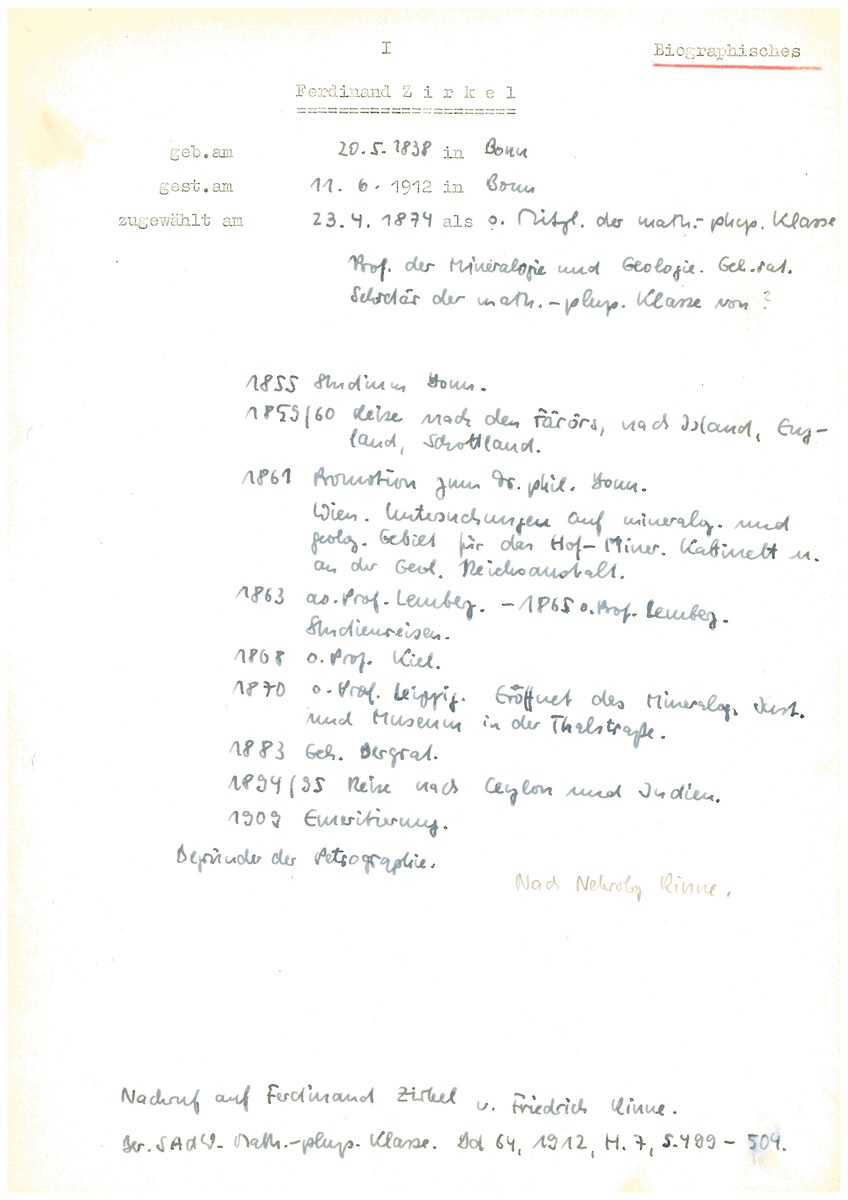 I
Biographisches
Ferdinand Z i r k e l
=====================
geb.am 20.5.1838 in Bonn
gest.am 11. 6. 1912 in Bonn
zugewählt am 23.4. 1874 als o. Mitgl. der math.-phys. Klasse
Prof. der Mineralogie und Geologie. Geh.rat.
Sekretär der math.-phys. Klasse von ?
1855 Studium Bonn.
1859/60 Reise nach den Färörs, nach Island, Eng-
land, Schottland.
1861 Promotion zum Dr. phil. Bonn.
Wien. Untersuchungen auf mineralog. und
geolog. Gebiet für das Hof-Miner. Kabinett u.
an der Geol. Reichsanstalt.
1863 ao. Prof. Lemberg. - 1865 o. Prof. Lemberg.
Studienreisen.
1868 o. Prof. Kiel.
1870 o. Prof. Leipzig. Eröffnet das Mineralog. Inst.
und Museum in der Thalstraße.
1883 Geh. Bergrat.
1894/95 Reise nach Ceylon und Indien.
1909 Emeritierung.
Begründer der Petrographie.
Nach Nekrolog Rinne.
Nachruf auf Ferdinand Zirkel v. Friedrich Rinne.
Ber. SAdW. Math.-phys. Klasse. Bd 64, 1912, H. 7, S. 499 - 504.